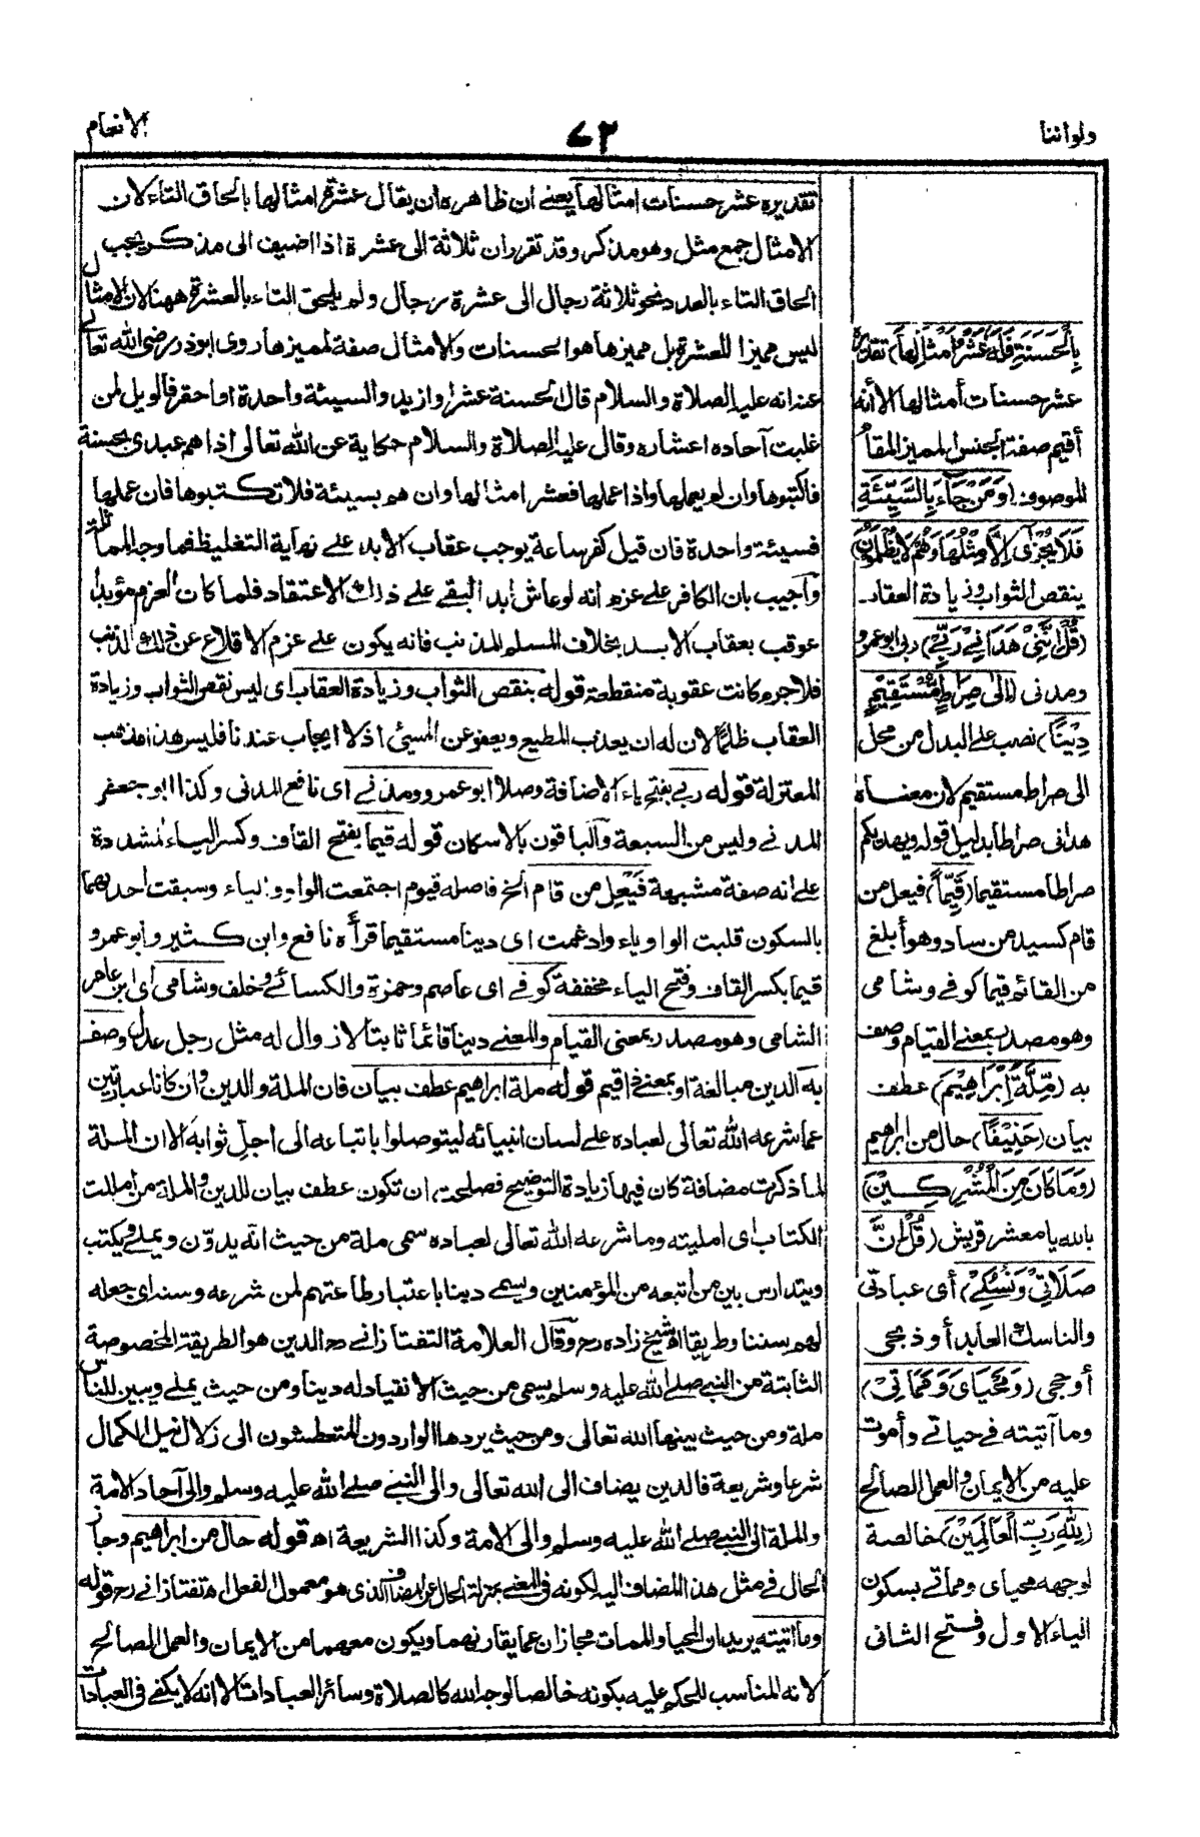 ولواننا
٤٢
الانعام
بِالْحَسَنَةِ فَلَهُ عَشْرُ أَمْثَالِهَا) تقديره
عشر حسنات أمثالها الا أنه
أقيم صفة الجنس المميز المقام
الموصوف (وَمَنْ جَاءَ بِالسَّيِّئَةِ
فَلَا يُجْزَى إِلَّا مِثْلَهَا وَهُمْ لَا يُظْلَمُونَ)
ينقص الثواب وزيادة العقاب
(قُلْ إِنَّنِي هَدَانِي رَبِّي) ربي ابوعمرو
ومدنى (إِلَى صِرَاطٍ مُسْتَقِيمٍ
دِينًا) نصب على البدل من محل
الى صراط مستقيم لان معناه
هدانى صراطا بدليل قوله ويهديكم
صراطا مستقيما (قَيِّمًا) فيعل من
قام كسيد من ساد وهو أبلغ
من القائم قيما كوفى وشامى
وهو مصدر بمعنى القيام وصف
به (مِلَّةَ إِبْرَاهِيمَ) عطف
بيان (حَنِيفًا) حال من ابراهيم
(وَمَا كَانَ مِنَ الْمُشْرِكِينَ)
بالله يا معشر قريش (قُلْ إِنَّ
صَلَاتِي وَنُسُكِي) أى عبادتى
والناسك العابد أو ذبحى
أو حجى (وَمَحْيَايَ وَمَمَاتِي)
وما آتيته فى حياتى وأموت
عليه من الايمان والعمل الصالح
(لِلَّهِ رَبِّ الْعَالَمِينَ) خالصة
لوجهه محياى ومماتى بسكون
الياء الاول وفتح الثانى
تقديره عشر حسنات امثالها يعنى ان ظاهره ان يقال عشرة امثالها بالحاق التاء لان
الامثال جمع مثل وهو مذكر وقد تقرر ان ثلاثة الى عشرة اذا اضيف الى مذكر يجب
الحاق التاء بالعدد نحو ثلاثة رجال الى عشرة رجال ولم يلحق التاء بالعشرة ههنا لان الامثال
ليس مميزا للعشرة بل مميزها هو الحسنات والامثال صفة لمميزها روى ابوذر رضى الله تعالى
عنه انه عليه الصلاة والسلام قال الحسنة عشر او ازيد والسيئة واحدة او احقر فالويل لمن
غلبت آحاده اعشاره وقال عليه الصلاة والسلام حكاية عن الله تعالى اذا هم عبدى بحسنة
فاكتبوها وان لم يعملها واذا عملها فعشر امثالها وان هم بسيئة فلا تكتبوها فان عملها
فسيئة واحدة فان قيل كفر ساعة يوجب عقاب الابد على نهاية التغليظ فما وجه المماثلة
وأجيب بان الكافر على عزم انه لو عاش ابدا لبقى على ذلك الاعتقاد فلما كان العزم مؤبدا
عوقب بعقاب الابد بخلاف المسلم المذنب فانه يكون على عزم الاقلاع عن ذلك الذنب
فلا جرم كانت عقوبة منقطعة قوله بنقص الثواب وزيادة العقاب اى ليس نقص الثواب وزيادة
العقاب ظلما لان له ان يعذب المطيع ويعفو عن المسيئ اذ لا ايجاب عندنا فليس هذا مذهب
المعتزلة قوله ربى بفتح ياء الاضافة وصلا ابو عمرو ومدنى اى نافع المدنى وكذا ابو جعفر
المدنى وليس من السبعة والباقون بالاسكان قوله قيما بفتح القاف وكسر الياء المشددة
على انه صفة مشبهة فيعل من قام الخ فاصله قيوم اجتمعت الواو والياء وسبقت احدهما
بالسكون قلبت الواو ياء وادغمت اى دينا مستقيما قرأه نافع وابن كثير وابو عمرو
قيما بكسر القاف وفتح الياء مخففة كوفى اى عاصم وحمزة والكسائى وخلف وشامى أى ابن عامر
الشامى وهو مصدر بمعنى القيام والمعنى دينا قائما ثابتا لا زوال له مثل رجل عدل وصف
به الدين مبالغة او بمعنى ذا قيم قوله ملة ابراهيم عطف بيان فان الملة والدين وان كانا عبارتين
عما شرعه الله تعالى لعباده على لسان انبيائه ليتوصلوا باتباعه الى اجل ثوابه الا ان الملة
لما ذكرت مضافة كان فيها زيادة التوضيح فصلحت ان تكون عطف بيان للدين والملة من امللت
الكتاب اى امليته وما شرعه الله تعالى لعباده سمى ملة من حيث انه يدوّن ويملى ويكتب
ويتدارس بين من اتبعه من المؤمنين ويسمى دينا باعتبار طاعتهم لمن شرعه وسنه اى جعله
لهم سننا وطريقا اه شيخ زاده رح وقال العلامة التفتازانى رح الدين هو الطريقة المخصوصة
الثابتة من النبى صلى الله عليه وسلم يسمى من حيث الانقياد له دينا ومن حيث يملى ويبين للناس
ملة ومن حيث بينها الله تعالى ومن حيث يردها الواردون المتعطشون الى زلال نيل الكمال
شرعا وشريعة فالدين يضاف الى الله تعالى والى النبى صلى الله عليه وسلم والى آحاد الامة
والملة الى النبى صلى الله عليه وسلم والى الامة وكذا الشريعة اه قوله حال من ابراهيم وجاز
الحال فى مثل هذا المضاف اليه لكونه فى المعنى بمنزلة الحال عن المضاف الذى هو معمول الفعل اه تفتازانى رح قوله
وما آتيته يريد ان المحيا والممات مجازان عما يقارنهما ويكون معهما من الايمان والعمل الصالح
لانه المناسب للحكم عليه بكونه خالصا لوجه الله كالصلاة وسائر العبادات الا انه لا يكفى فى العبادات